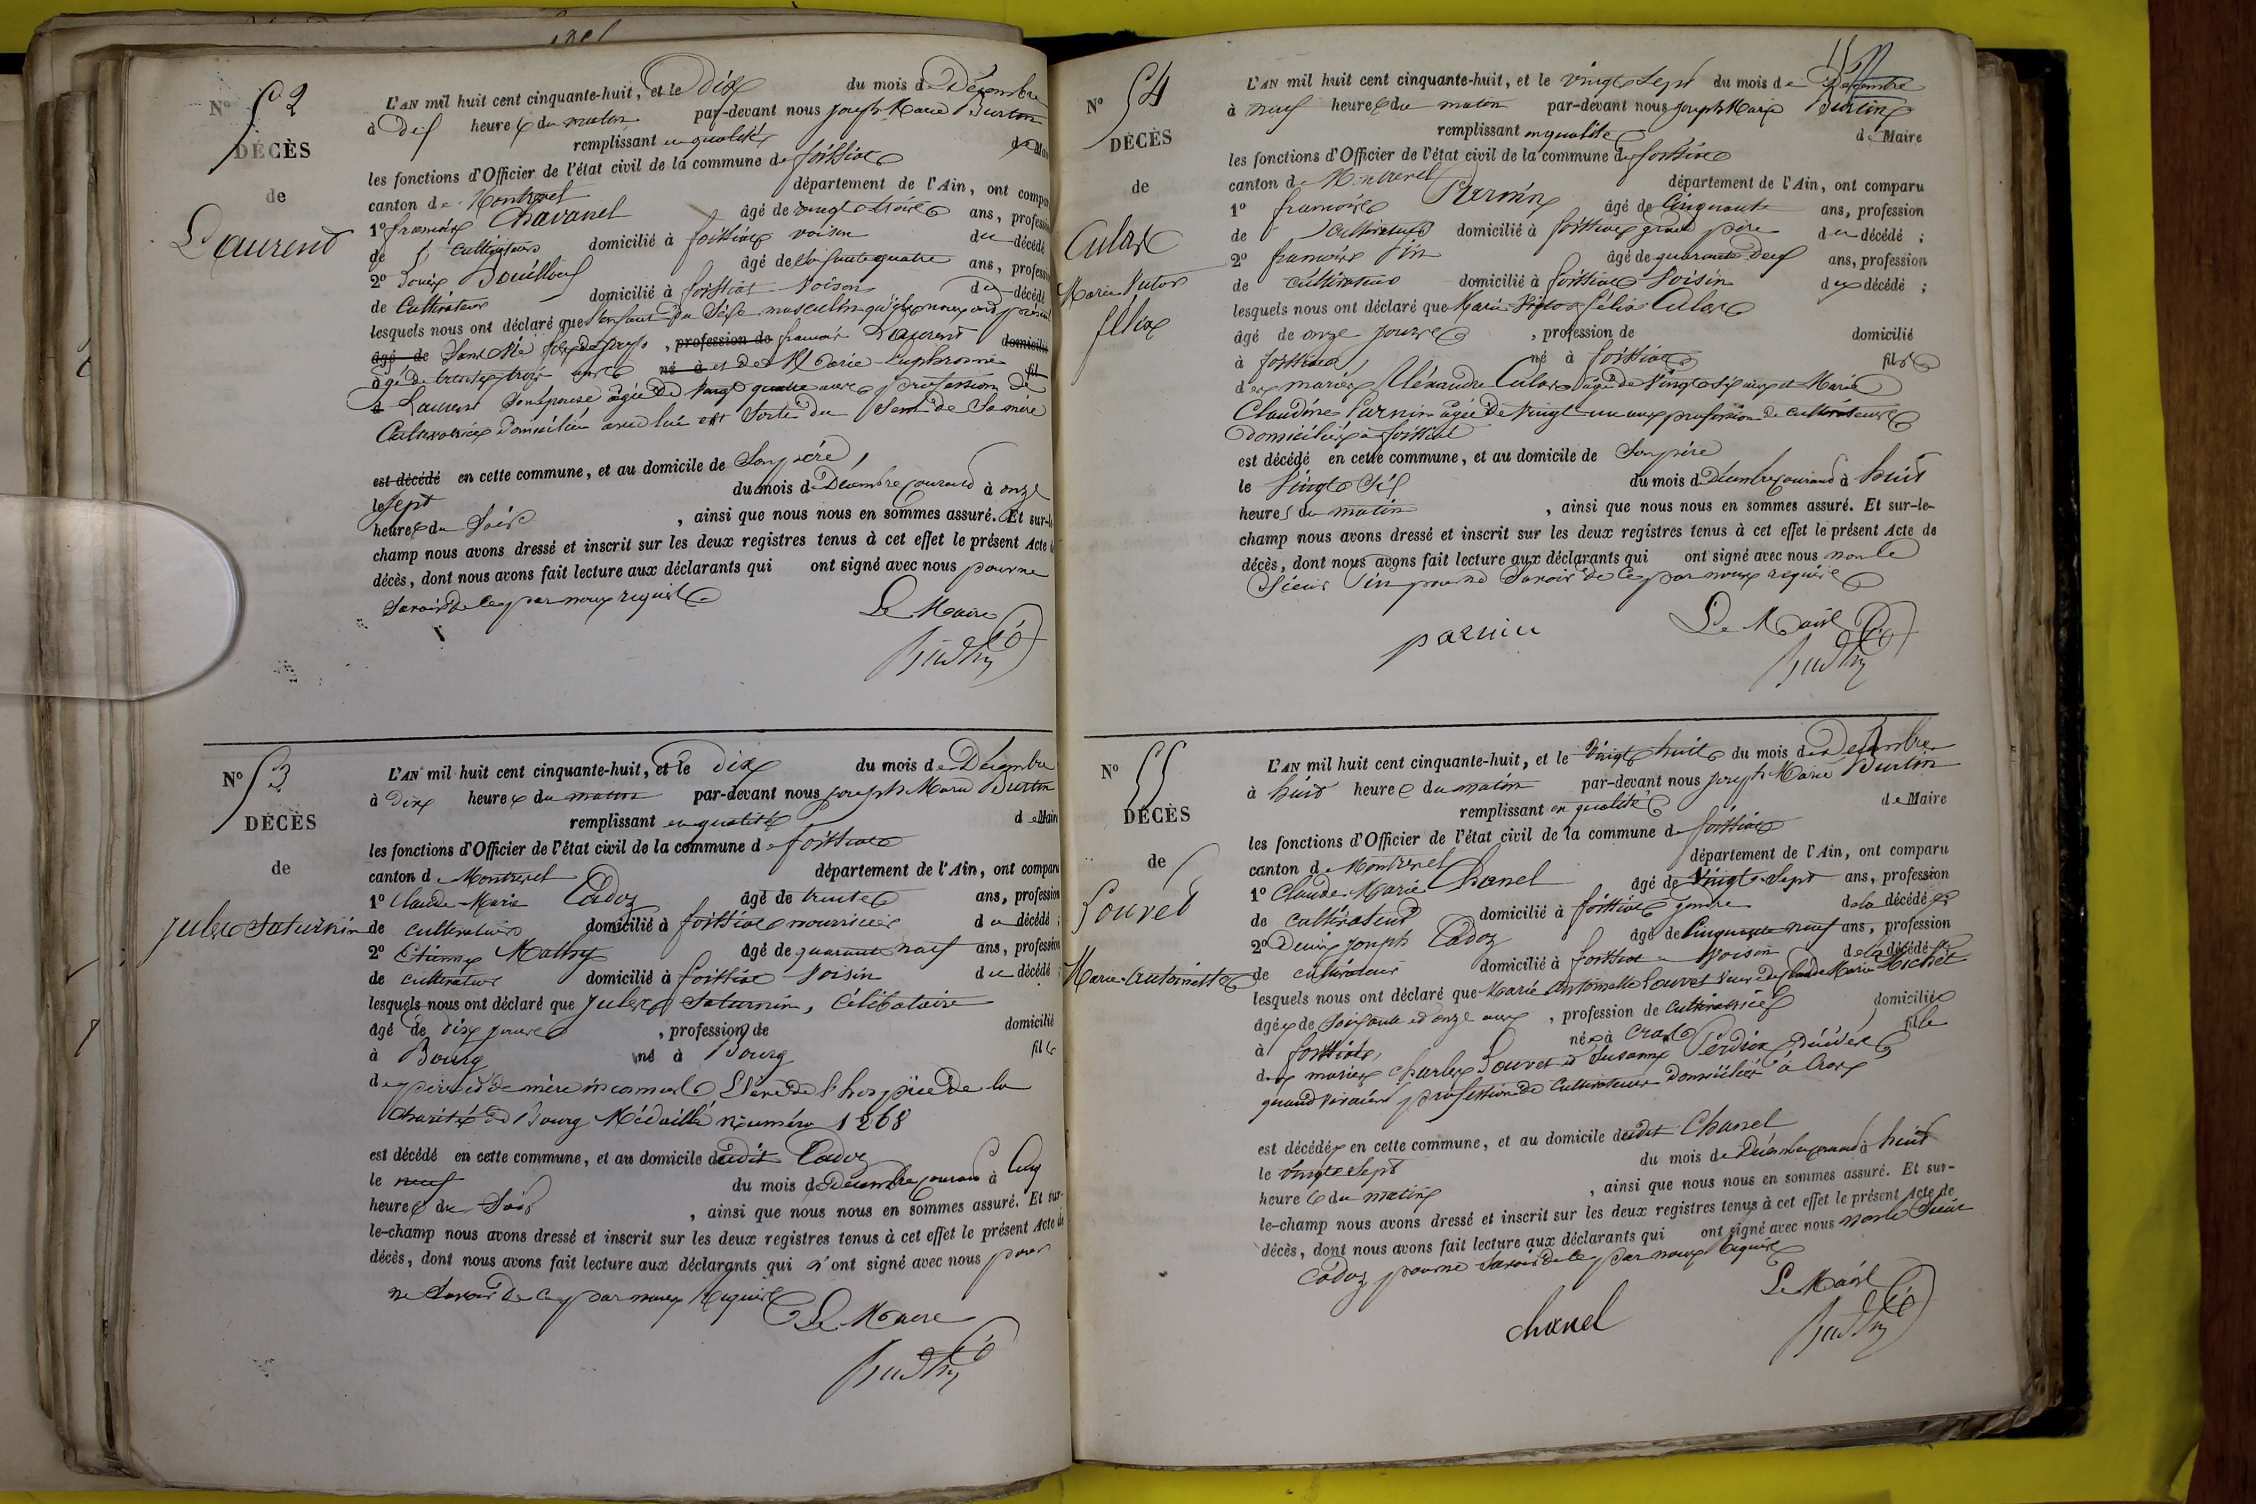 N° 52
DÉCÈS
de
Laurent
L'AN mil huit cent cinquante-huit, et le Dix du mois de Décembre
à Dix heures du matin par-devant nous joseph Marie Burtin
remplissant en qualité de Maire
les fonctions d'Officier de l'état civil de la commune de foissiat
canton de Montrevel département de l'Ain, ont comparu
1° françois Chavanel âgé de vingt trois ans, profession
de cultivateur domicilié à foissiat voisin du décédé
2° Bouilloux âgé de soixante quatre ans, profession
de Cultivateur domicilié à foissiat Voisin du décédé
lesquels nous ont déclaré que l'enfant du Sexe masculin qu'ils nous ont présenté
âgé de Sans Vie profession de françois Laurent domicilié
âgé de trente trois ans né à et de Marie Euphrosine fil
Laurent Son épouse âgée de Vingt quatre ans profession de
Cultivatrice domiciliée avec lui est Sorti du Sein de Sa mère
est décédé en cette commune, et au domicile de Son père,
le Sept du mois de Décembre courant à onze
heures du Soir , ainsi que nous nous en sommes assuré. Et sur-le
champ nous avons dressé et inscrit sur les deux registres tenus à cet effet le présent Acte de
décès, dont nous avons fait lecture aux déclarants qui ont signé avec nous pour ne
Savoir de ce par nous requis
Le Maire
Burtin
N° 53
DÉCÈS
de
Jules Saturnin
L'AN mil huit cent cinquante-huit, et le Dix du mois de Décembre
à Dix heures du matin par-devant nous joseph Marie Burtin
remplissant en qualité de Maire
les fonctions d'Officier de l'état civil de la commune de foissiat
canton de Montrevel département de l'Ain, ont comparu
1° Claude Marie Cadoz âgé de trente ans, profession
de cultivateur domicilié à foissiat nourricier du décédé ;
2° Etienne Mathy âgé de quarante neuf ans, profession
de cultivateur domicilié à foissiat Voisin du décédé ;
lesquels nous ont déclaré que Jules Saturnin, Célibataire
âgé de dix jours , profession de domicilié
à Bourg né à Bourg fils
de père et de mère inconnus Elève de l'hospice de la
Charité de Bourg Médaille numéro 1268
est décédé en cette commune, et au domicile dudit Cadoz
le neuf du mois de Décembre courant à Cinq
heures du Soir , ainsi que nous nous en sommes assuré. Et sur-
le-champ nous avons dressé et inscrit sur les deux registres tenus à cet effet le présent Acte de
décès, dont nous avons fait lecture aux déclarants qui n'ont signé avec nous pour
ne Savoir de ce par nous requis
Le Maire
Burtin
N° 54
DÉCÈS
de
Culas
Marie Victor
félix
L'AN mil huit cent cinquante-huit, et le vingt Sept du mois de Décembre
à neuf heures du matin par-devant nous joseph Marie Burtin
remplissant en qualité de Maire
les fonctions d'Officier de l'état civil de la commune de foissiat
canton de Montrevel département de l'Ain, ont comparu
1° françois Pernin âgé de Cinquante ans, profession
de Cultivateur domicilié à foissiat grand père du décédé ;
2° françois Pin âgé de quarante deux ans, profession
de cultivateur domicilié à foissiat Voisin du décédé ;
lesquels nous ont déclaré que Marie Victor félix Culas
âgé de onze jours , profession de domicilié
à foissiat né à foissiat fils
des mariés Alexandre Culas âgé de Vingt Six ans et Marie
Claudine Pernin âgée de Vingt un ans profession de cultivateurs
Domiciliés à foissiat
est décédé en cette commune, et au domicile de Son père
le Vingt Six du mois de Décembre courant à huit
heures du matin , ainsi que nous nous en sommes assuré. Et sur-le-
champ nous avons dressé et inscrit sur les deux registres tenus à cet effet le présent Acte de
décès, dont nous avons fait lecture aux déclarants qui ont signé avec nous non le
Sieur Pin pour ne Savoir de ce par nous requis
parnin
Le Maire
Burtin
N° 55
DÉCÈS
de
Louvet
Marie-Antoinette
L'AN mil huit cent cinquante-huit, et le Vingt huit du mois de Décembre
à huit heures du matin par-devant nous joseph Marie Burtin
remplissant en qualité de Maire
les fonctions d'Officier de l'état civil de la commune de foissiat
canton de Montrevel département de l'Ain, ont comparu
1° Claude Marie Chanel âgé de Vingt Sept ans, profession
de cultivateur domicilié à foissiat gendre de la décédée
2° Denis joseph Cadoz âgé de Cinquante neuf ans, profession
de cultivateur domicilié à foissiat Voisin de la décédée
lesquels nous ont déclaré que Marie Antoinette Louvet Veuve de Claude Marie Michel
âgée de Soixante et onze ans , profession de Cultivatrice domiciliée
à foissiat, née à Cras fille
des mariés Charles Louvet et Susanne Perdrix décédés
quand vivaient profession de Cultivateurs domiciliés à Cras
est décédée en cette commune, et au domicile dudit Chanel
le Vingt Sept du mois de Décembre courant à huit
heures du matin , ainsi que nous nous en sommes assuré. Et sur-
le-champ nous avons dressé et inscrit sur les deux registres tenus à cet effet le présent Acte de
décès, dont nous avons fait lecture aux déclarants qui ont signé avec nous non le Sieur
Cadoz pour ne Savoir de ce par nous requis
Le Maire
chanel
Burtin